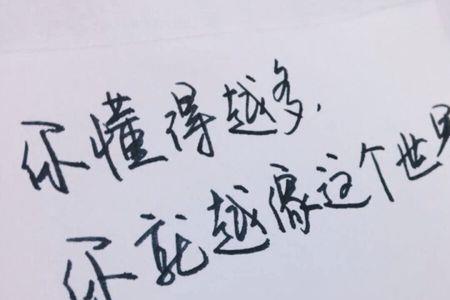 你懂得越多,
你就越像这个世界